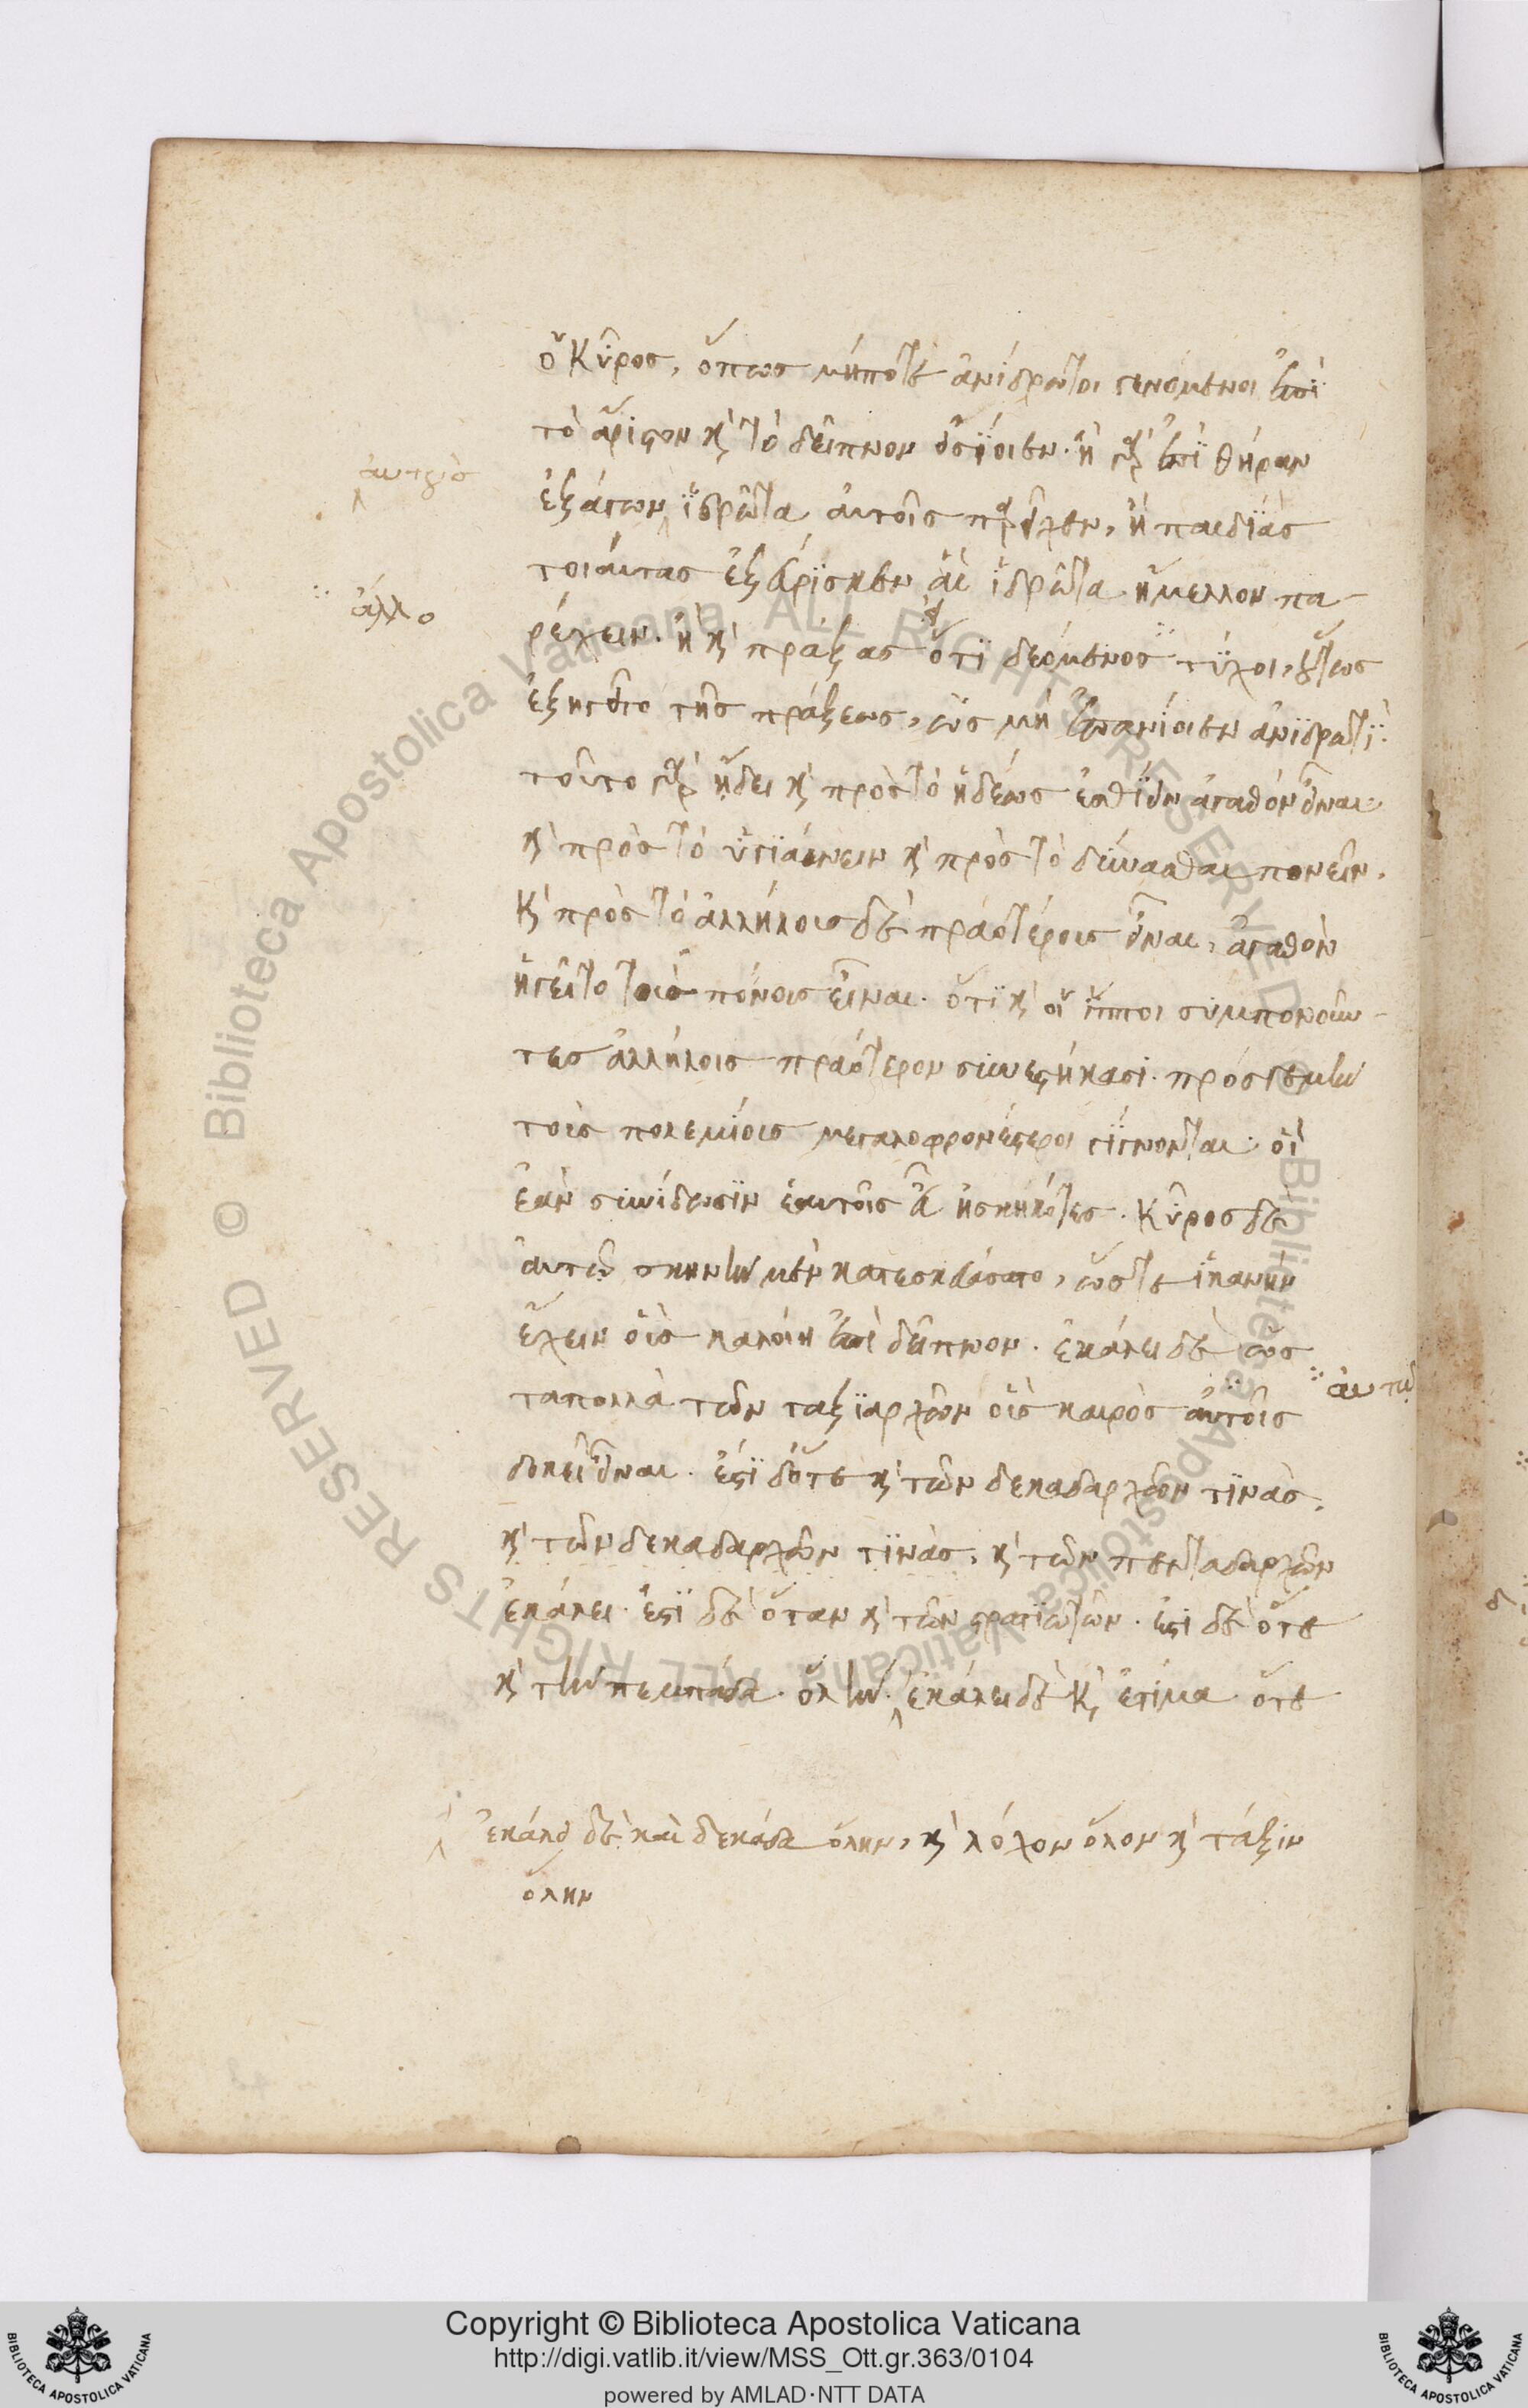 ὁ Κῦρος, ὅπως μήποτε ἀνίδρωτοι γενόμενοι ἐπὶ
τὸ ἄριστον κ̀ τὸ δεῖπνον εἰσίοιεν. ἢ γὰρ ἐπὶ θήραν
αὐτοὺς
ἐξάγων ἱδρῶτα αὐτοῖς παρεῖχεν, ἢ παιδιὰς
τοιαύτας ἐξεύρισκεν αἳ ἱδρῶτα ἤμελλον πα-
ἄλλο
ρέχειν. ἢ κ̀ πράξας ὅτι δεόμενος τύχοι, οὕτως
ἐξηγεῖτο τῆς πράξεως, ὡς μὴ ἐπανίοιεν ἀνιδρωτί.
τοῦτο γὰρ ᾔδει κ̀ πρὸς τὸ ἡδέως ἐσθίειν ἀγαθὸν εἶναι
κ̀ πρὸς τὸ ὑγιαίνειν κ̀ πρὸς τὸ δύνασθαι πονεῖν.
κ̀ πρὸς τὸ ἀλλήλοις δὲ πραοτέροις εἶναι, ἀγαθὸν
ἡγεῖτο τοὺς πόνοις εἶναι. ὅτι κ̀ οἱ ἵπποι συμπονοῦν-
τες ἀλλήλοις πραότερον συνεστήκασι. πρός γε μὴν
τοὺς πολεμίοις μεγαλοφρονέστεροι γίγνονται οἳ
ἐὰν συνίδωσιν ἑαυτοῖς ἃ ἠσκηκότες. Κῦρος δὲ
αὑτῷ σκηνὴν μὲν κατεσκεύασατο, ὥστε ἱκανὴν
ἔχειν οἷς καλοίη ἐπὶ δεῖπνον. ἐκάλει δὲ ὡς
ταπολλὰ τῶν ταξιαρχῶν οἷς καιρὸς αὐτοῖς
αὐτῷ
δοκεῖ εἶναι. ἔστι δ' ὅτε κ̀ τῶν δεκαδαρχῶν τινὰς,
κ̀ τῶν δεκαδαρχῶν τινὰς, κ̀ τῶν πενταδαρχῶν
ἐκάλει. ἔστι δὲ ὅταν κ̀ τῶν στρατιωτῶν. ἔστι δὲ ὅτε
κ̀ τὴν πεμπάδα ὅλην. ἐκάλει δὲ κ̀ ἐτίμα ὅτε
ἐκάλει δὲ καὶ δεκάδα ὅλην, κ̀ λόχον ὅλον κ̀ τάξιν
ὅλην
Copyright © Biblioteca Apostolica Vaticana
http://digi.vatlib.it/view/MSS_Ott.gr.363/0104
powered by AMLAD·NTT DATA
BIBLIOTECA APOSTOLICA VATICANA
BIBLIOTECA APOSTOLICA VATICANA
Biblioteca Apostolica Vaticana ALL RIGHTS RESERVED © Biblioteca Apostolica Vaticana ALL RIGHTS RESERVED ©